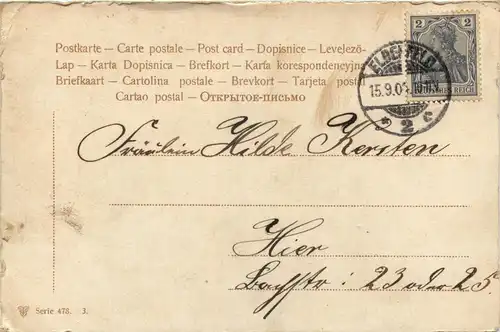 Postkarte – Carte postale – Post card – Dopisnice – Levelező-
Lap – Karta Dopisnica – Brefkort – Karta korespondencyjna
Briefkaart – Cartolina postale – Brevkort – Tarjeta postal
Cartao postal – Открытое-письмо
2 2
REICH
ELBERFELD
15.9.03
* 2 c
Fräulein Hilde Kersten
Hier
Baystr: 23 oder 25.
Serie 478. 3.